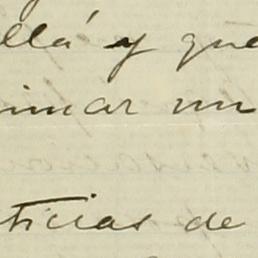 ellá y que
imar un
ticias de